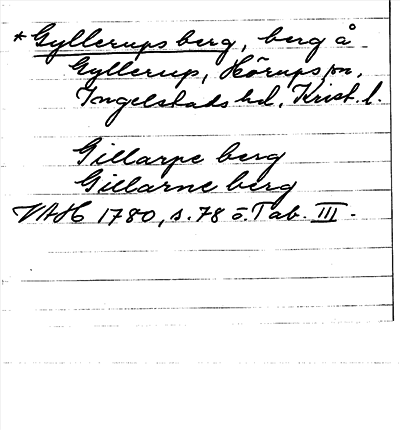 * Gyllerups berg, berg å
Gyllerup, Hörups sn,
Ingelstads hd, Krist. l.
Gillarpe berg
Gillarne berg
VAH 1780, s. 78 o. Tab. III.